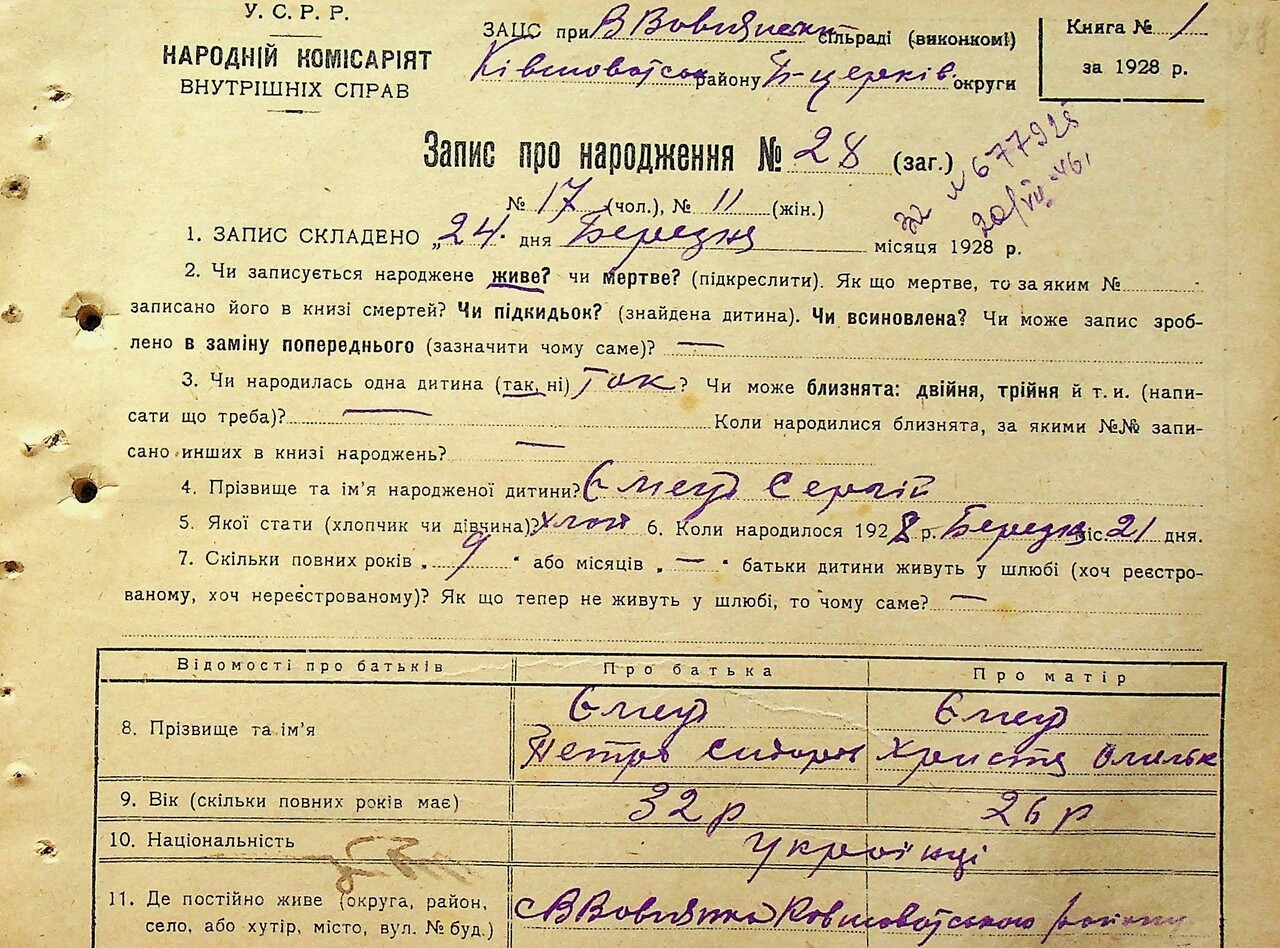 У. С. Р. Р.
НАРОДНІЙ КОМІСАРІЯТ
ВНУТРІШНІХ СПРАВ
ЗАЦС при В Вовнянськ сільраді (виконкомі)
району Б-церків. округи
Книга № 1
за 1928 р.
Запис про народження № 28 (заг.)
№ 17 (чол.), № 11 (жін.)
№ 677928
20/VII-46.
1. ЗАПИС СКЛАДЕНО „24" дня Березня місяця 1928 р.
2. Чи записується народжене живе? чи мертве? (підкреслити). Як що мертве, то за яким №
записано його в книзі смертей? Чи підкидьок? (знайдена дитина). Чи всиновлена? Чи може запис зроб-
лено в заміну попереднього (зазначити чому саме)? —
3. Чи народилась одна дитина (так, ні) Так? Чи може близнята: двійня, трійня й т. и. (напи-
сати що треба)? — Коли народилися близнята, за якими №№ запи-
сано инших в книзі народжень? —
4. Прізвище та ім'я народженої дитини? Сергій
5. Якої стати (хлопчик чи дівчина)? хлоп 6. Коли народилося 1928 р. Березня міс. 21 дня.
7. Скільки повних років „9" або місяців „—" батьки дитини живуть у шлюбі (хоч реєстро-
ваному, хоч нереєстрованому)? Як що тепер не живуть у шлюбі, то чому саме? —
Відомості про батьків Про батька Про матір
8. Прізвище та ім'я
Петро Сидоров Христя
9. Вік (скільки повних років має) 32 р 26 р
10. Національність Українці
11. Де постійно живе (округа, район,
село, або хутір, місто, вул. № буд.) с В Вовнянка Ковшоватського району